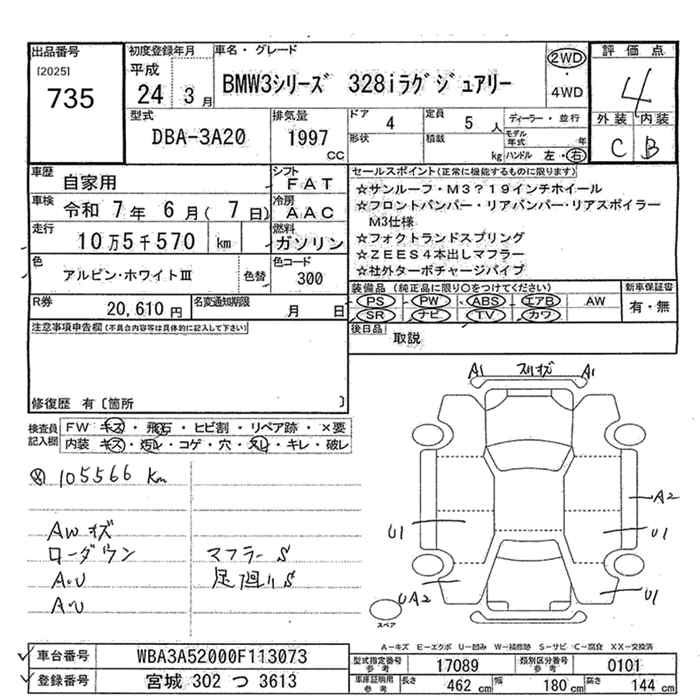 出品番号
[2025]
735
初度登録年月
平成
24 3月
車名・グレード
BMW3シリーズ 328iラグジュアリー
2WD
・
4WD
評価点
4
外装 内装
C B
型式
DBA-3A20
排気量
1997
cc
ドア
4
形状
定員
5 人
積載
kg
ディーラー・並行
モデル年式 年
ハンドル 左・右
車歴
自家用
シフト
FAT
車検
令和 7年 6月( 7日)
冷房
AAC
走行
10万5千570 km
燃料
ガソリン
色
アルピン・ホワイトⅢ
色替
色コード
300
R券
20,610円
名変通知期限
月 日
セールスポイント(正常に機能するものに限ります)
☆サンルーフ・M3?19インチホイール
☆フロントバンパー・リアバンパー・リアスポイラー
M3仕様
☆フォクトランドスプリング
☆ZEES4本出しマフラー
☆社外ターボチャージパイプ
装備品(純正品に限り○をつけてください)
PS・PW・ABS・エアB AW
SR・ナビ・TV・カワ
新車保証書
有・無
後日品
取説
注意事項申告欄(不具合内容等は具体的に記入して下さい)
修復歴 有〔箇所 〕
検査員記入欄
FW キズ・飛石・ヒビ割・リペア跡・×要
内装 キズ・汚レ・コゲ・穴・スレ・キレ・破レ
105566 Km
AWキズ
ローダウン マフラーS
A・U 足廻りS
A・U
A1 スリキズ A1
A2
U1 U1
UA2 U1
スペア
A－キズ E－エクボ U－凹み W－補修跡 S－サビ C－腐食 XX－交換済
車台番号
WBA3A52000F113073
登録番号
宮城 302 つ 3613
型式指定番号
参考
17089
類別区分番号
参考
0101
車庫証明用
参考
長さ 462 cm
幅 180 cm
高さ 144 cm